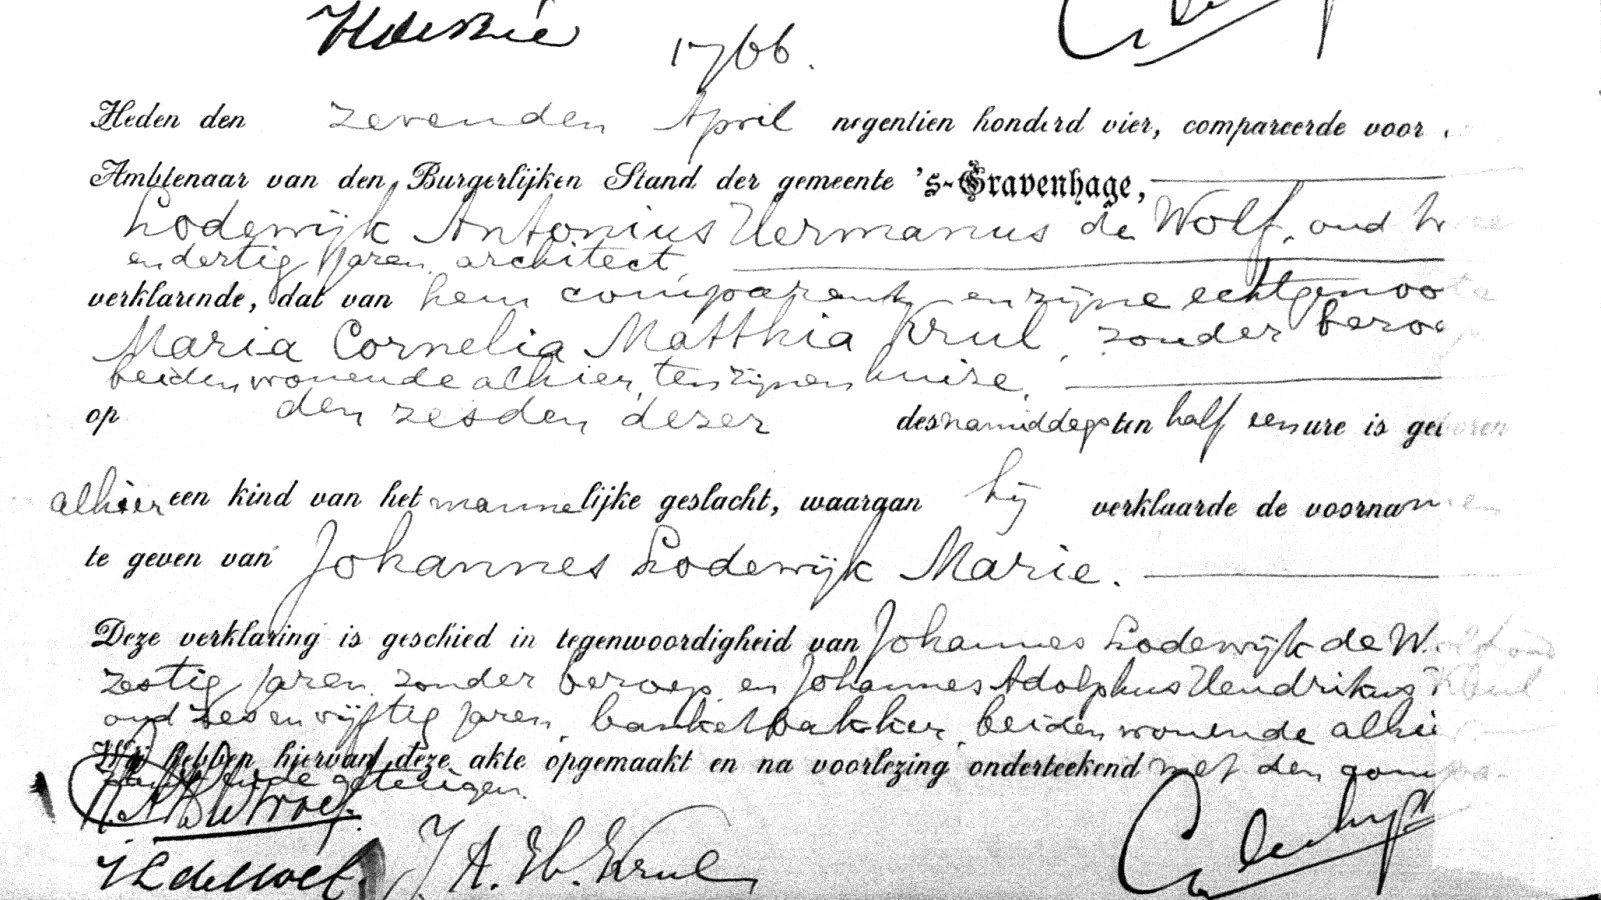 1766.
Heden den zevenden April negentien honderd vier, compareerde voor
Ambtenaar van den Burgerlijken Stand der gemeente 's-Gravenhage,
Lodewijk Antonius Hermanus de Wolf, oud twee
en dertig jaren, architect,
verklarende, dat van hem comparant en zijne echtgenoote
Maria Cornelia Matthia Krul, zonder beroep
beiden wonende alhier, ten zijnen huize,
op den zesden dezer des namiddags ten half een ure is geboren
alhier een kind van het mannelijke geslacht, waaraan hij verklaarde de voornamen
te geven van Johannes Lodewijk Marie.
Deze verklaring is geschied in tegenwoordigheid van Johannes Lodewijk de Wolf oud
zestig jaren, zonder beroep, en Johannes Adolphus Hendrikus Krul
oud zes en vijftig jaren, banketbakker, beiden wonende alhier
Wij hebben hiervan deze akte opgemaakt en na voorlezing onderteekend met den compa-
rant en de getuigen.
J L de Wolf. J. A. H. Krul